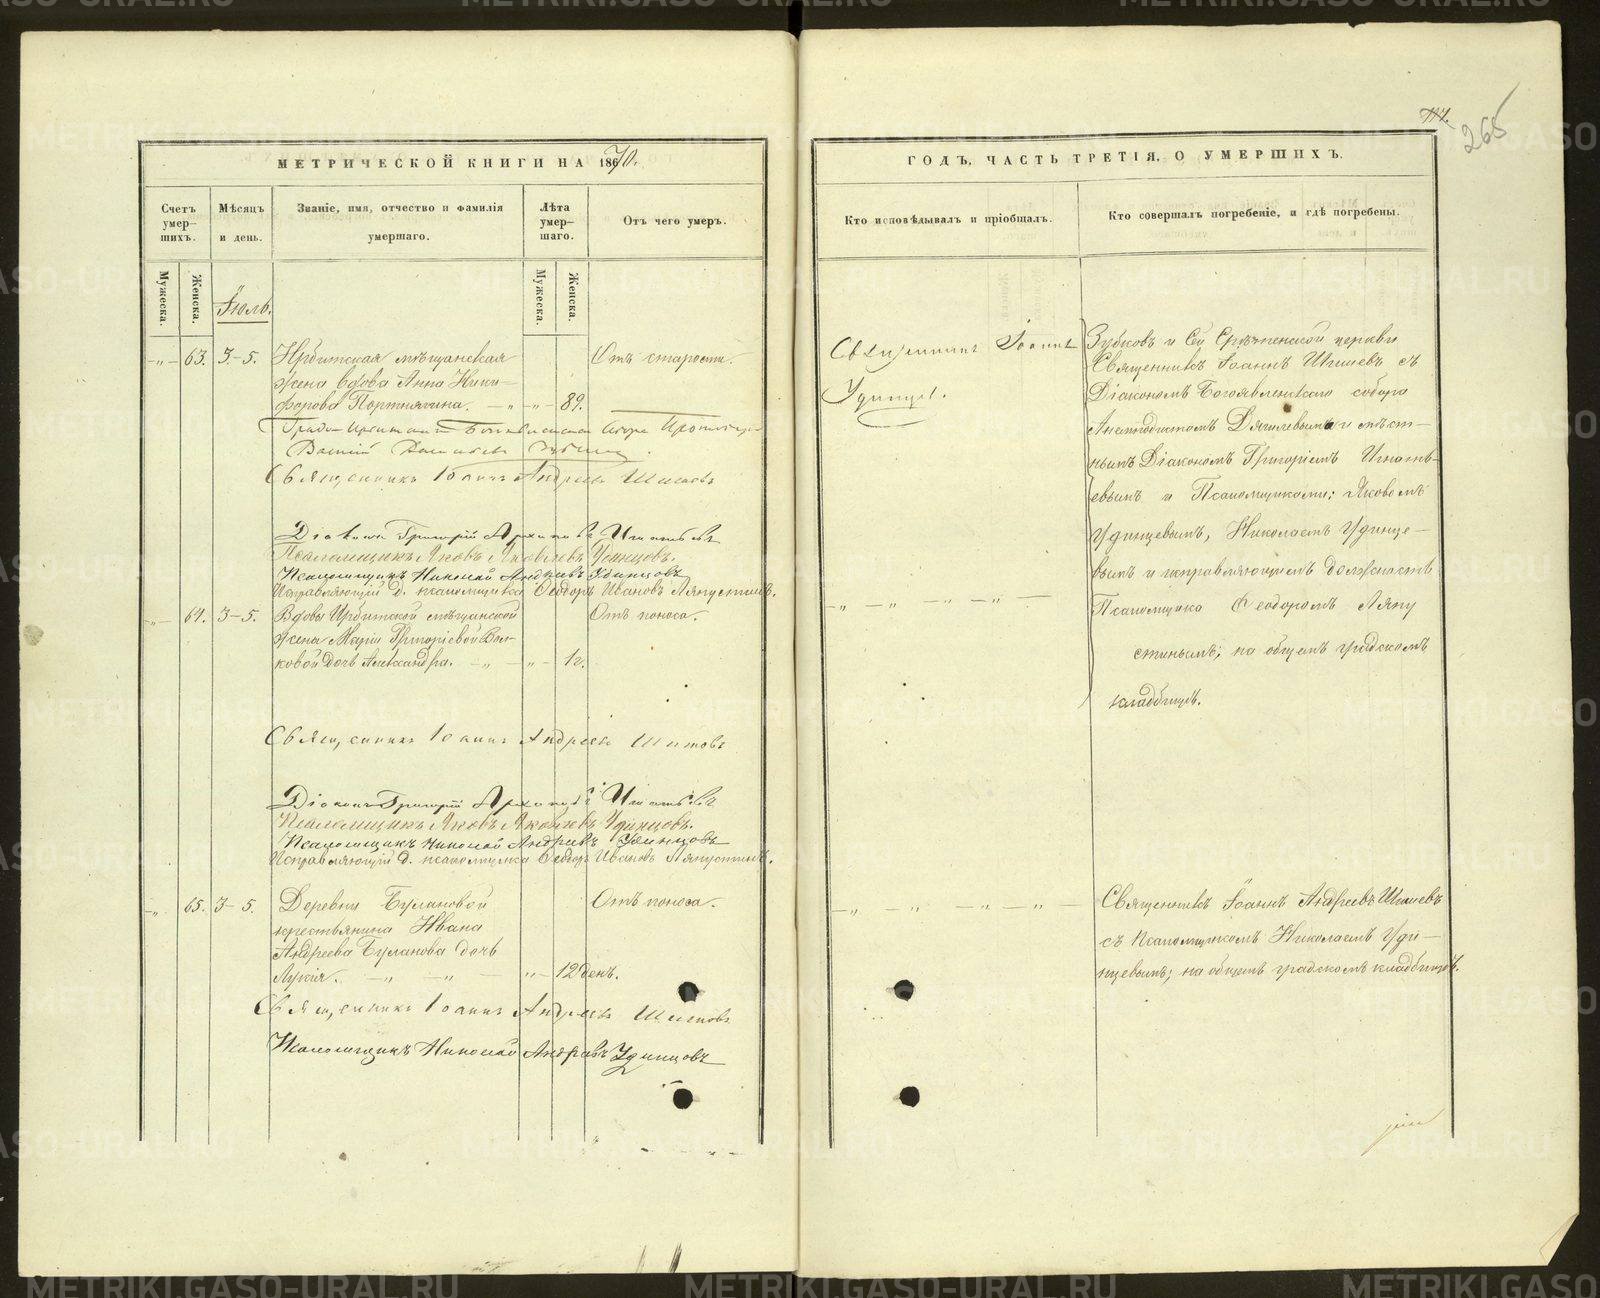 МЕТРИЧЕСКОЙ КНИГИ НА 1870.
Счетъ умер-шихъ.
Мѣсяцъ и день.
Званіе, имя, отчество и фамилія умершаго.
Лѣта умер-шаго.
Отъ чего умеръ.
Мужеска.
Женска.
Мужеска.
Женска.
Іюль.
63. 3-5. Ирбитская мѣщанская Отъ старости.
жена вдова Анна Ники-
форова Портнягина. 89.
Священникъ Іоаннъ Андреевъ
Діаконъ Григорій Игнатьевъ
Псаломщикъ Яковъ Яковлевъ Удинцовъ.
Псаломщикъ Николай Андреевъ Удинцовъ
Исправляющій д. псаломщика Ѳеодоръ Ивановъ Ляпустинъ.
64. 3-5. Вдовы Ирбитской мѣщанской Отъ поноса.
жена Маріи Григоріевой
ковой дочь Александра. 1 г.
Священникъ Іоаннъ Андреевъ
Діаконъ Григорій Игнатьевъ
Псаломщикъ Яковъ Яковлевъ Удинцовъ.
Псаломщикъ Николай Андреевъ Удинцовъ
Исправляющій д. псаломщика Ѳеодоръ Ивановъ Ляпустинъ.
65. 3-5. Деревни Булановой Отъ поноса.
крестьянина Ивана
Андреева Буланова дочь
Лукія. 12 день.
Священникъ Іоаннъ Андреевъ
Псаломщикъ Николай Андреевъ Удинцовъ
265
ГОДЪ, ЧАСТЬ ТРЕТІЯ, О УМЕРШИХЪ.
Кто исповѣдывалъ и пріобщалъ.
Кто совершалъ погребеніе, и гдѣ погребены.
Священникъ Іоаннъ
Удинцевъ.
Зубковъ и Сей Срѣтенской церкви
Священникъ Іоаннъ съ
Діакономъ Богоявленскаго собора
Дягилевымъ и мѣст-
нымъ Діакономъ Григоріемъ Игнать-
евымъ и Псаломщиками: Яковомъ
Удинцевымъ, Николаемъ Удинце-
вымъ и исправляющимъ должность
Псаломщика Ѳеодоромъ Ляпу
стинымъ; на общемъ градскомъ
кладбищѣ.
Священникъ Іоаннъ Андреевъ
съ псаломщикомъ Николаемъ Уди-
нцевымъ; на общемъ градскомъ кладбищѣ.
METRIKI.GASO-URAL.RU